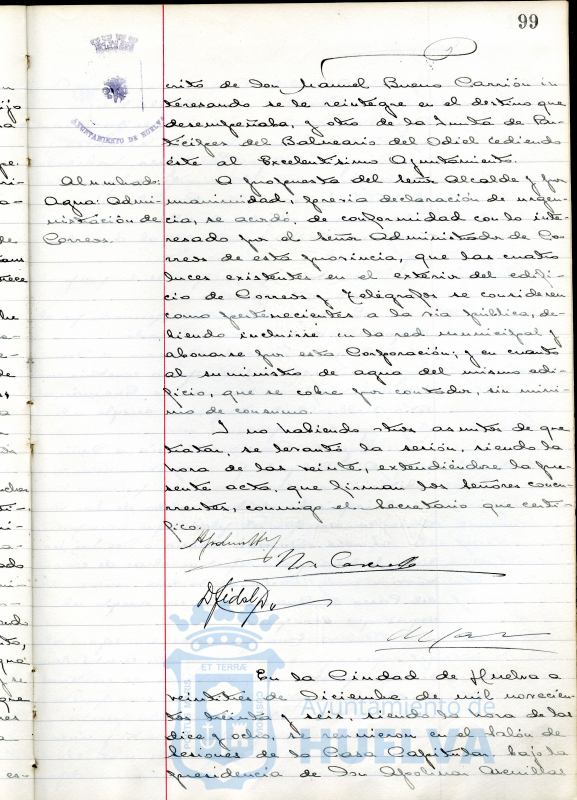 99
AYUNTAMIENTO DE HUELVA
crito de Don Manuel Bueno Carrión in-
teresando se le reintegre en el destino que
desempeñaba, y otro de la Junta de Par-
tícipes del Balneario del Odiel cediendo
éste al Excelentísimo Ayuntamiento.
Alumbrado:
Agua: Admi-
nistración de
Correos.
A propuesta del Señor Alcalde y por
unanimidad, previa declaración de urgen-
cia, se acordó, de conformidad con lo inte-
resado por el Señor Administrador de Co-
rreos de esta provincia, que las cuatro
luces existentes en el exterior del edifi-
cio de Correos y Telégrafos se consideren
como pertenecientes a la vía pública, de-
biendo incluirse en la red municipal y
abonarse por esta Corporación; y en cuanto
al suministro de agua del mismo edi-
ficio, que se cobre por contador, sin míni-
mo de consumo.
Y no habiendo otros asuntos de que
tratar, se levantó la sesión, siendo la
hora de las veinte, extendiéndose la pre-
sente acta, que firman los señores concu-
rrentes, conmigo el Secretario que certi-
fico.
D. Fidalgo
En la Ciudad de Huelva a
veintitrés de Diciembre de mil novecien-
tos treinta y seis, siendo la hora de las
diez y ocho, se reunieron en el Salón de
Sesiones de la Casa Capitular, bajo la
presidencia de Don Apolinar Arenillas
ET TERRÆ
Ayuntamiento de
HUELVA